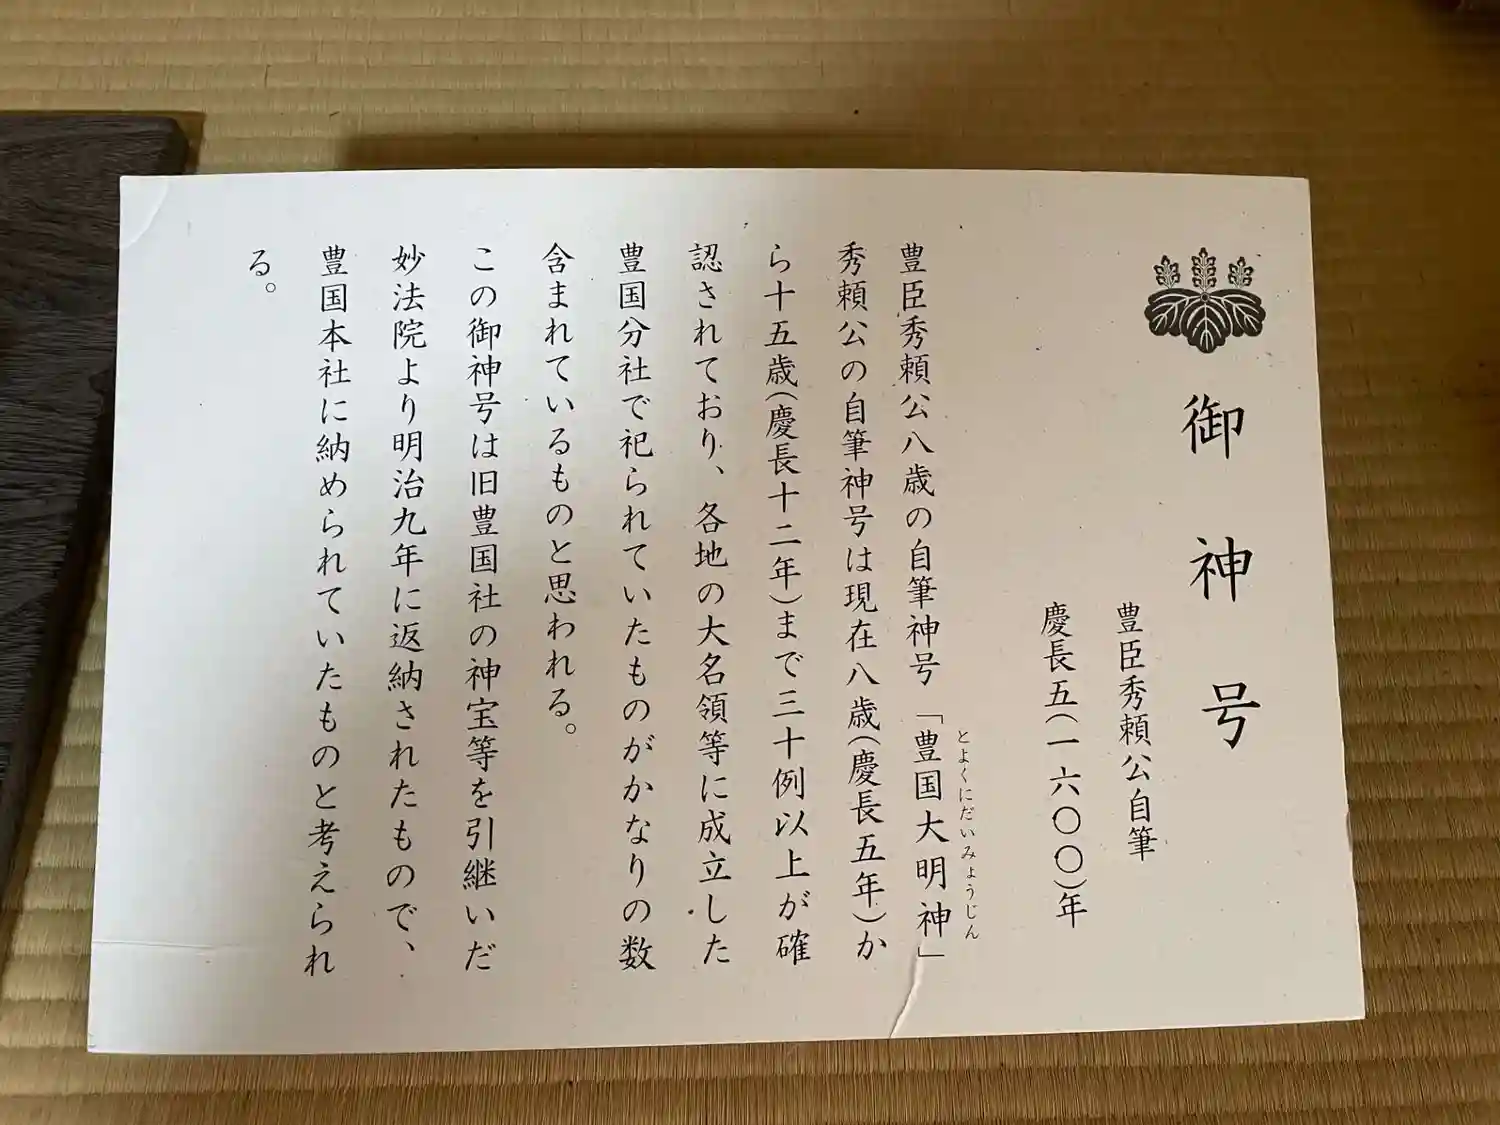 御神号
豊臣秀頼公自筆
慶長五(一六〇〇)年
豊臣秀頼公八歳の自筆神号「豊国大明神」
とよくにだいみょうじん
秀頼公の自筆神号は現在八歳(慶長五年)か
ら十五歳(慶長十二年)まで三十例以上が確
認されており、各地の大名領等に成立した
豊国分社で祀られていたものがかなりの数
含まれているものと思われる。
この御神号は旧豊国社の神宝等を引継いだ
妙法院より明治九年に返納されたもので、
豊国本社に納められていたものと考えられ
る。